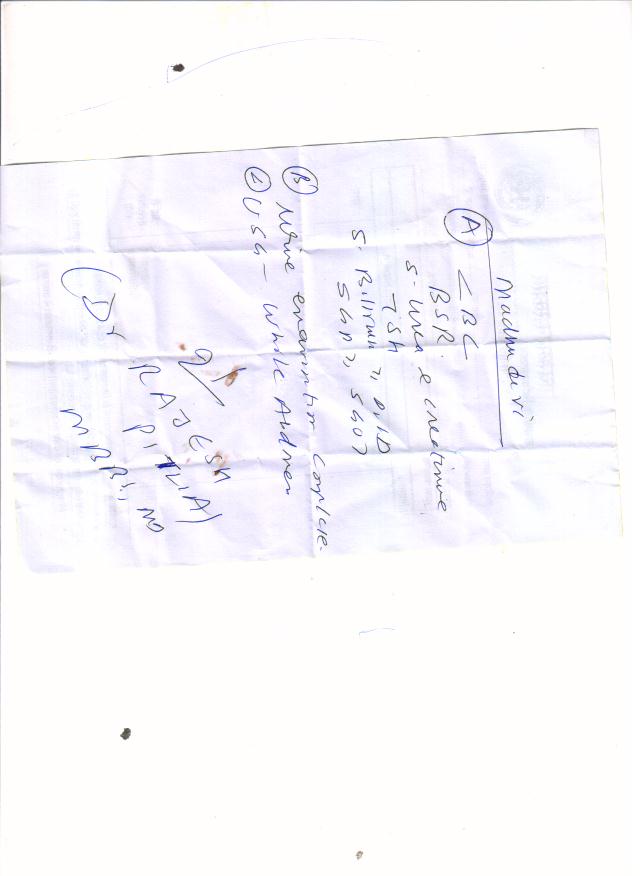 Madhu devi
(A) CBC
BSR
S. Urea & creatinine
TSH
S. Bilirubin T, D, ID
SGPT, SGOT
(B) Urine examination Complete
(C) USG - Whole Abdomen
(Dr RAJESH
MBBS, MD